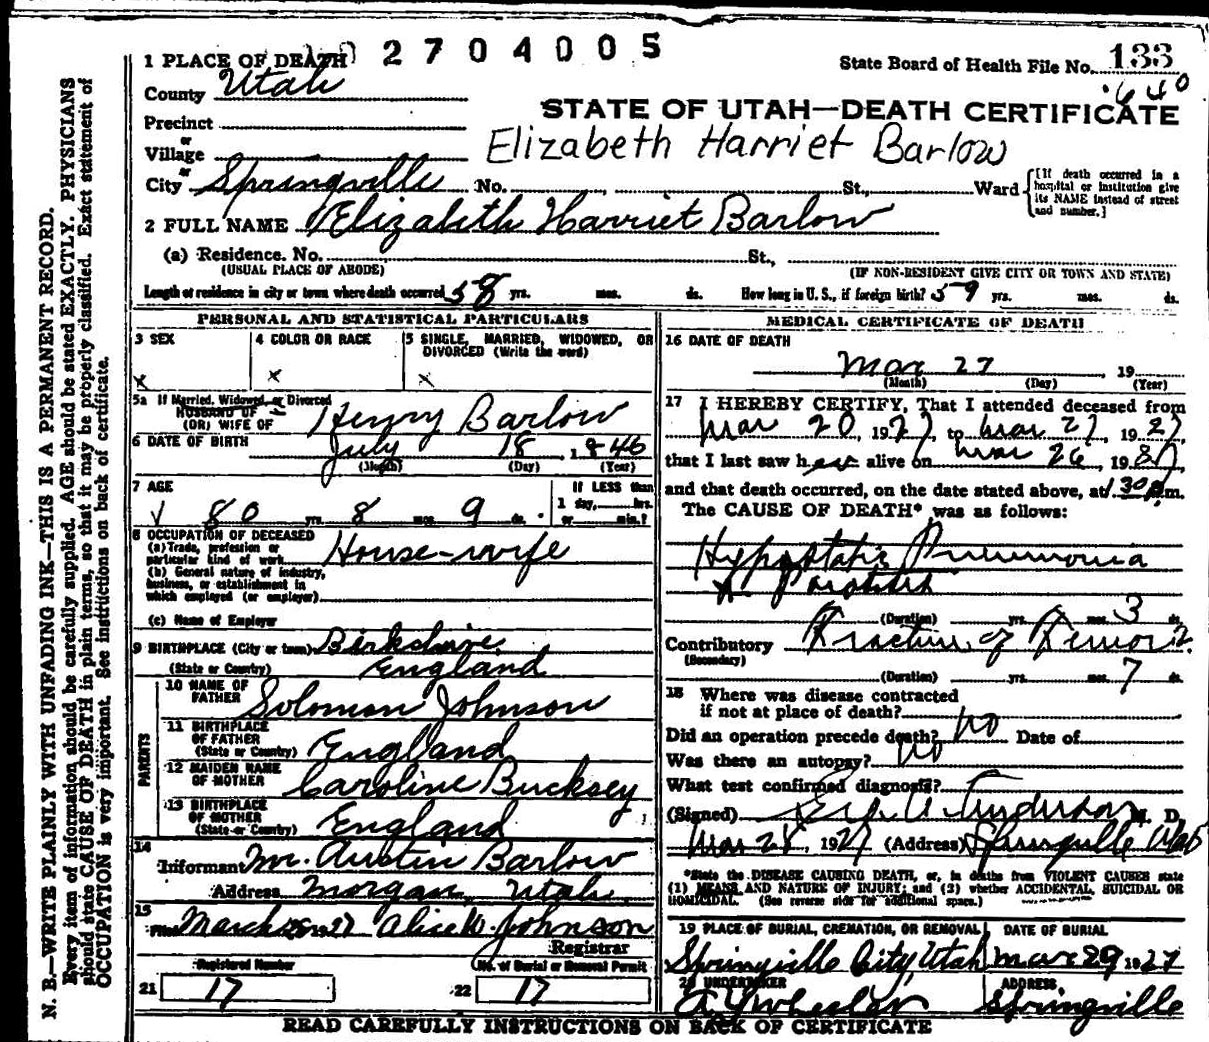 2704005
1 PLACE OF DEATH
State Board of Health File No. 133
640
County Utah
STATE OF UTAH—DEATH CERTIFICATE
Precinct
or
Village
Elizabeth Harriet Barlow
or
City Springville No. , St., Ward
[If death occurred in a hospital or institution give its NAME instead of street and number.]
2 FULL NAME Elizabeth Harriet Barlow
(a) Residence. No. St.,
(USUAL PLACE OF ABODE) (IF NON-RESIDENT GIVE CITY OR TOWN AND STATE)
Length of residence in city or town where death occurred 58 yrs. mos. ds. How long in U. S., if foreign birth? 59 yrs. mos. ds.
PERSONAL AND STATISTICAL PARTICULARS
3 SEX
x
4 COLOR OR RACE
x
5 SINGLE, MARRIED, WIDOWED, OR DIVORCED (Write the word)
x
5a If Married, Widowed, or Divorced
HUSBAND OF
(OR) WIFE OF Henry Barlow
6 DATE OF BIRTH July 18, 1846
(Month) (Day) (Year)
7 AGE
80 yrs. 8 mos. 9 ds.
If LESS than
1 day, hrs.
or min.?
8 OCCUPATION OF DECEASED
(a) Trade, profession or
particular kind of work House-wife
(b) General nature of industry,
business, or establishment in
which employed (or employer)
(c) Name of Employer
9 BIRTHPLACE (City or town) Birkshire
(State or Country) England
PARENTS
10 NAME OF FATHER Solomon Johnson
11 BIRTHPLACE OF FATHER
(State or Country) England
12 MAIDEN NAME OF MOTHER Caroline Bucksey
13 BIRTHPLACE OF MOTHER
(State or Country) England
14
Informant M. Austin Barlow
Address Morgan, Utah
15
Filed March 28 1927 Alice W. Johnson
Registrar
Registered Number
21 17
No. of Burial or Removal Permit
22 17
MEDICAL CERTIFICATE OF DEATH
16 DATE OF DEATH
Mar 27, 19
(Month) (Day) (Year)
17 I HEREBY CERTIFY, That I attended deceased from
Mar 20, 1927, to Mar 27, 1927,
that I last saw her alive on Mar 26, 1927,
and that death occurred, on the date stated above, at 130 p.m.
The CAUSE OF DEATH* was as follows:
Hypostatic Pneumonia
(Duration) yrs. mos. 3 ds.
Contributory Fracture of Femor
(Secondary)
(Duration) yrs. mos. 7 ds.
18 Where was disease contracted
if not at place of death?
Did an operation precede death? No Date of
Was there an autopsy? No
What test confirmed diagnosis?
(Signed) Anderson M. D.
Mar 28, 1927 (Address) Springville Utah
*State the DISEASE CAUSING DEATH, or, in deaths from VIOLENT CAUSES state
(1) MEANS AND NATURE OF INJURY; and (2) whether ACCIDENTAL, SUICIDAL OR
HOMICIDAL. (See reverse side for additional space.)
19 PLACE OF BURIAL, CREMATION, OR REMOVAL
Springville City, Utah
DATE OF BURIAL
Mar 29 1927
20 UNDERTAKER
A Y Wheeler
ADDRESS
Springville
READ CAREFULLY INSTRUCTIONS ON BACK OF CERTIFICATE
N. B.—WRITE PLAINLY WITH UNFADING INK—THIS IS A PERMANENT RECORD.
Every item of information should be carefully supplied. AGE should be stated EXACTLY. PHYSICIANS
should state CAUSE OF DEATH in plain terms, so that it may be properly classified. Exact statement of
OCCUPATION is very important. See instructions on back of certificate.